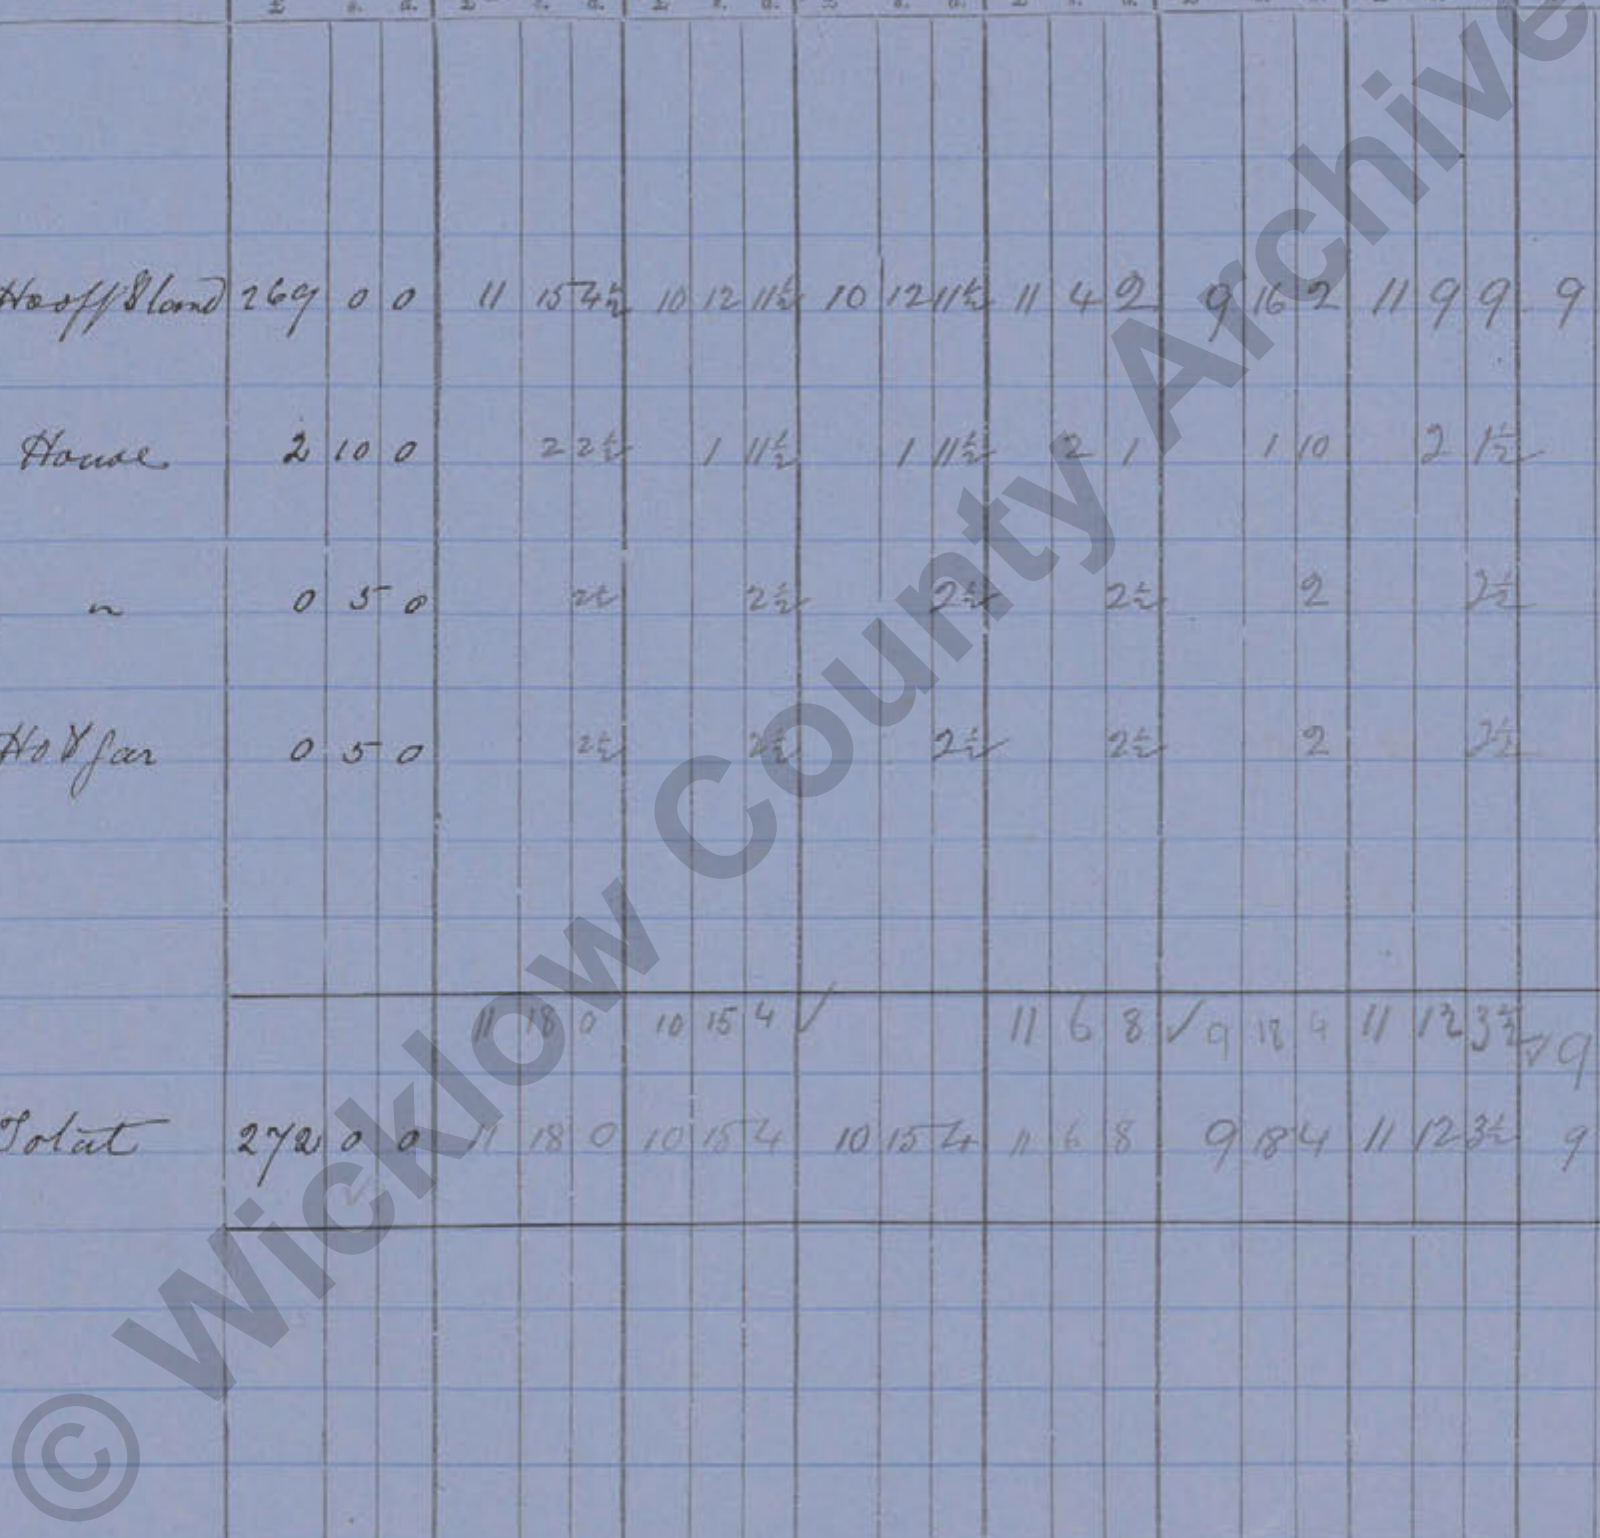 £ s. d. £ s. d. £ s. d. £ s. d. £ s. d.
Ho off & land 269 0 0 11 15 4½ 10 12 11½ 10 12 11½ 11 4 2 9 16 2 11 9 9 9
House 2 10 0 2 2½ 1 11½ 1 11½ 2 1 1 10 2 1½
" 0 5 0 2½ 2½ 2½ 2½ 2 2½
Ho & gar 0 5 0 2½ 2½ 2½ 2½ 2 2½
11 18 0 10 15 4 ✓ 11 6 8 ✓ 9 18 4 11 12 3½ ✓ 9
Total 272 0 0 11 18 0 10 15 4 10 15 4 11 6 8 9 18 4 11 12 3½ 9
© Wicklow County Archive